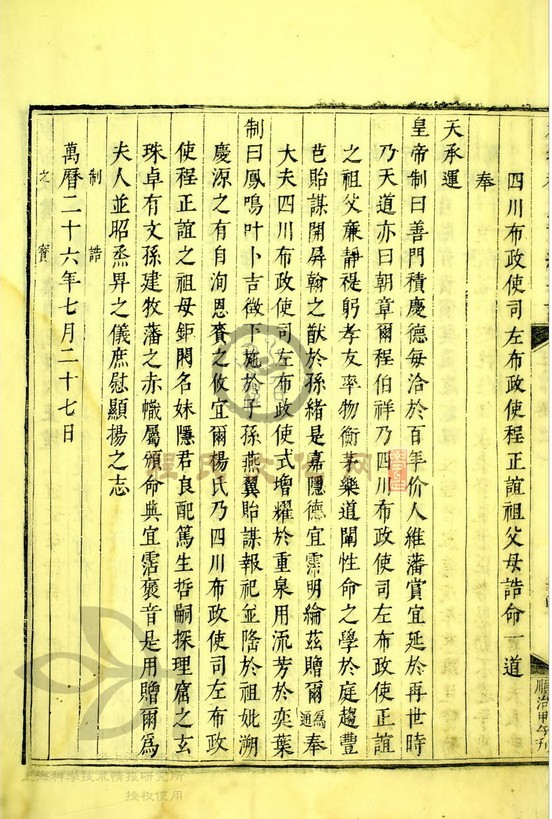 四川布政使司左布政使程正誼祖父母誥命一道
奉
天承運
皇帝制曰善門積慶德每洽於百年价人維藩賞宜延於再世時
乃天道亦曰朝章爾程伯祥乃四川布政使司左布政使正誼
之祖父廉靜禔躬孝友率物衡茅樂道闡性命之學於庭趨豐
芑貽謀開屏翰之猷於孫緒是嘉隱德宜霈明綸茲贈爾爲通奉
大夫四川布政使司左布政使式增耀於重泉用流芳於奕葉
制曰鳳鳴叶卜吉徵下施於子孫燕翼貽謀報祀並隆於祖妣溯
慶源之有自洵恩賚之攸宜爾楊氏乃四川布政使司左布政
使程正誼之祖母鉅閥名姝隱君良配篤生哲嗣探理窟之玄
珠卓有文孫建牧藩之赤幟屬頒命典宜霑褒音是用贈爾爲
夫人並昭烝畀之儀庶慰顯揚之志
制誥
萬曆二十六年七月二十七日
之寶
順治甲午刊
程氏文化网
上海科学技术情报研究所
授权使用